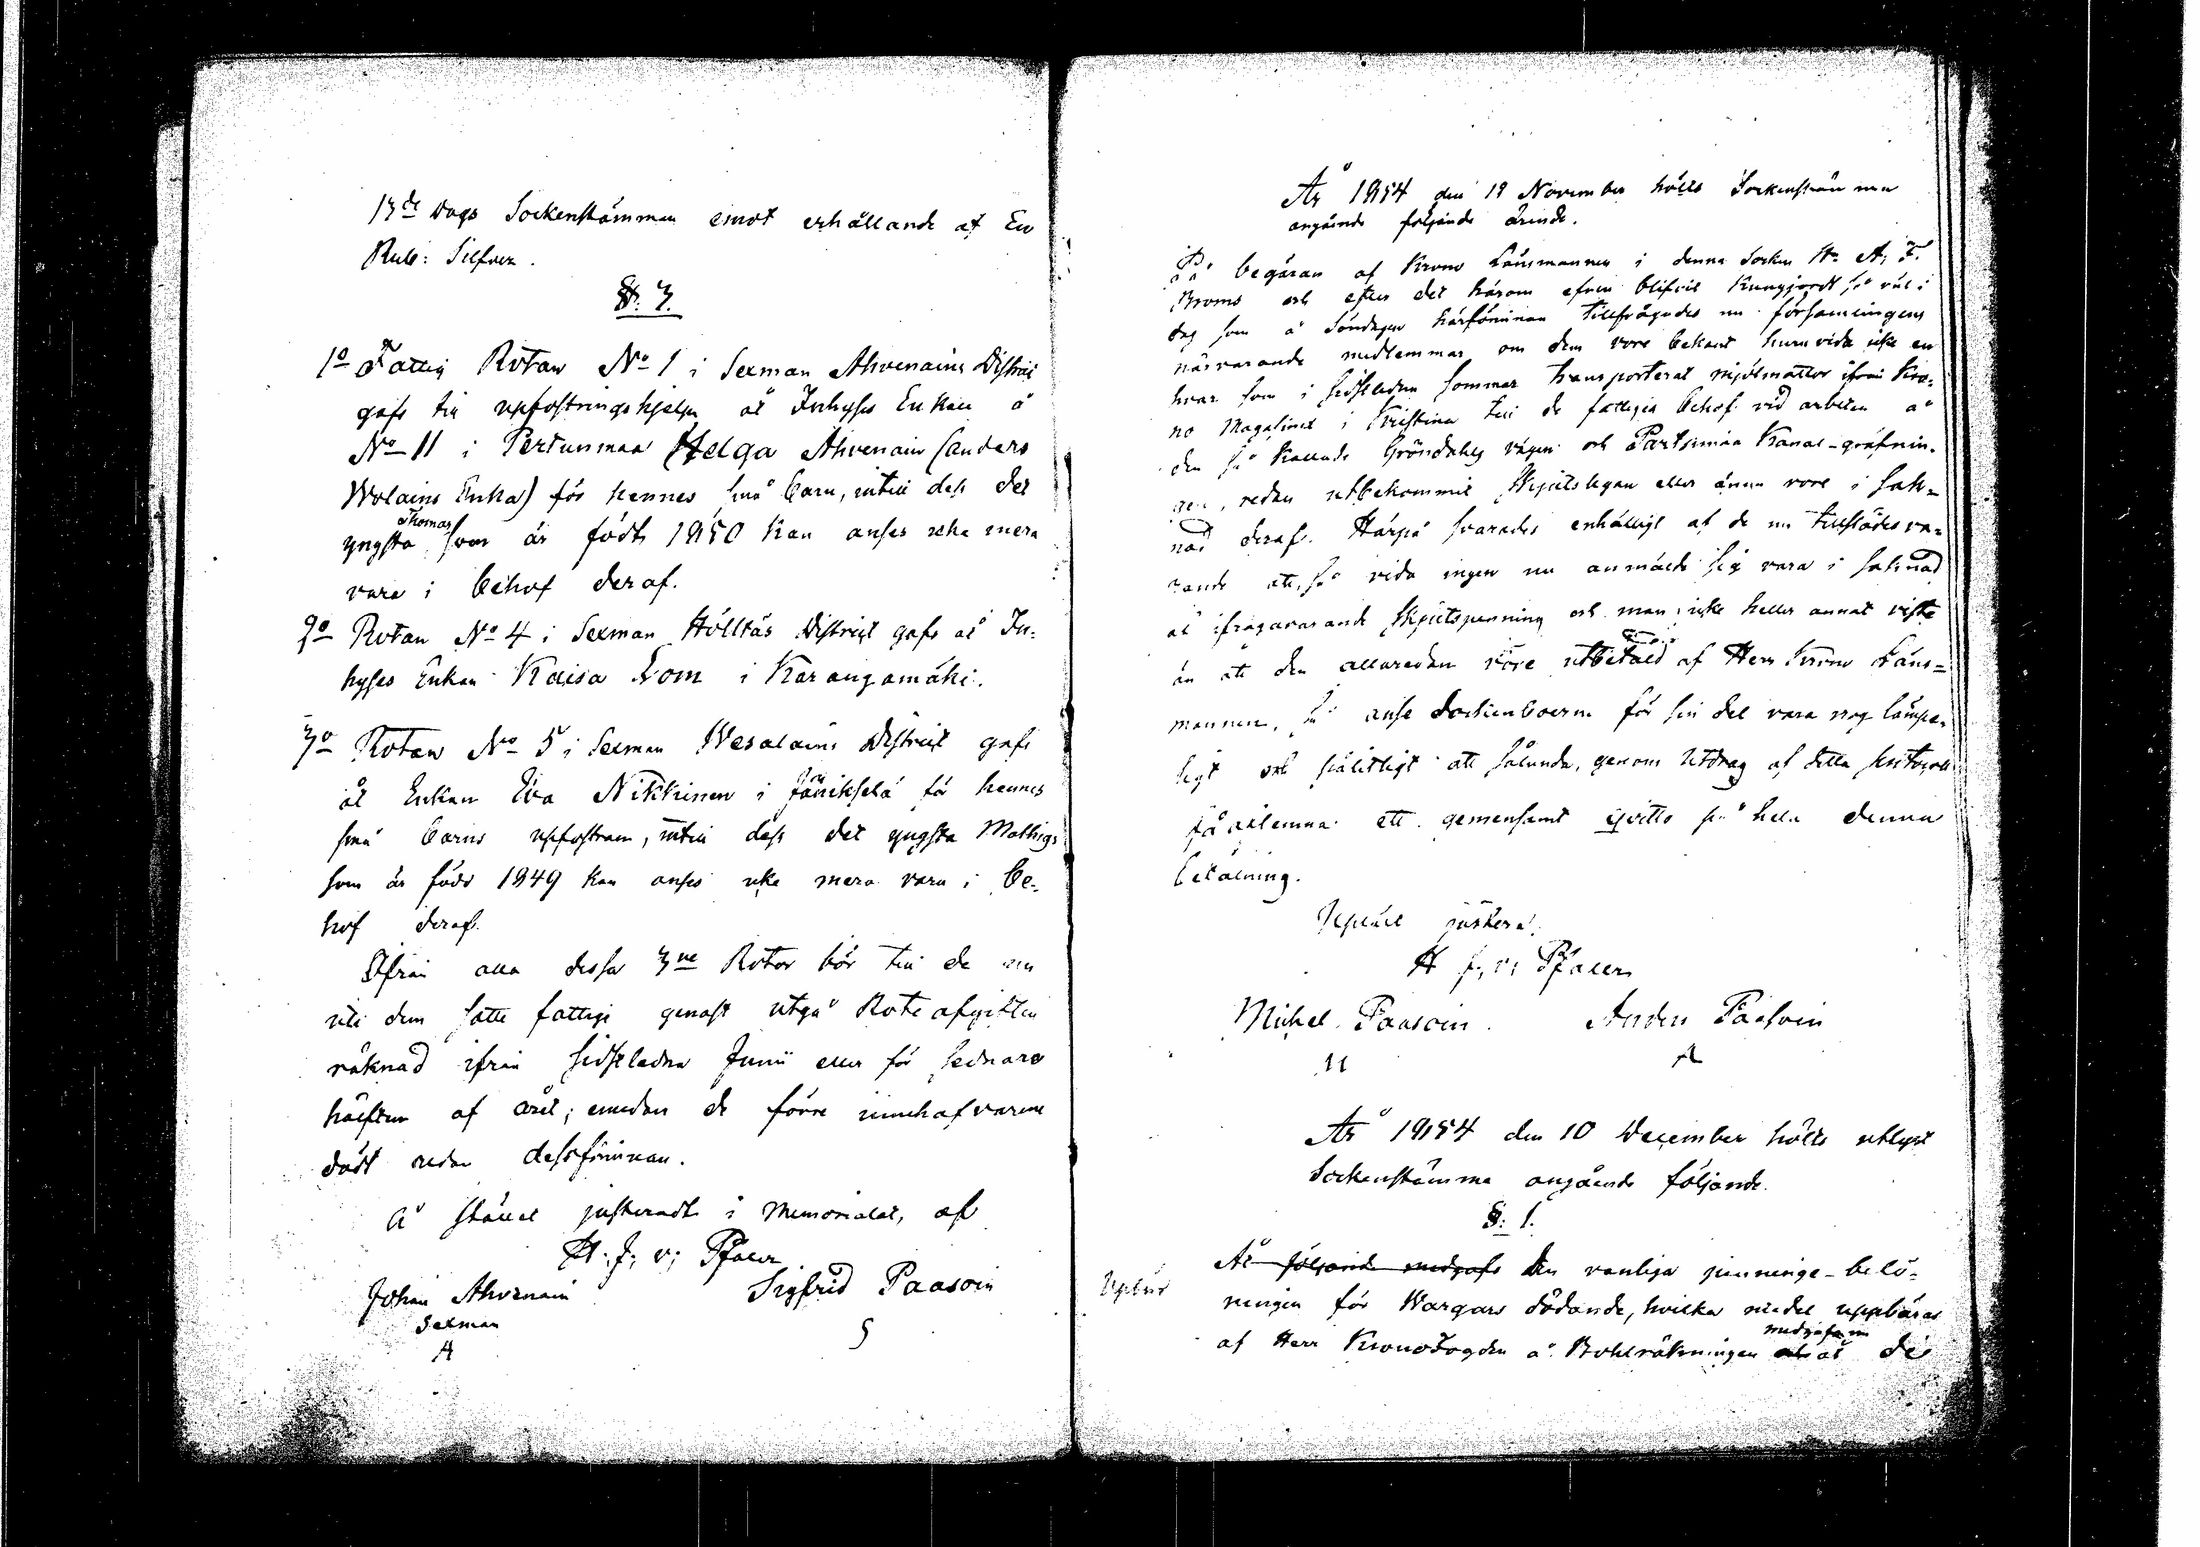 13de Dags Sockenstämman emot erhållande af En
Rub: Silfver.
§. 3.
1o Fattig Rotan No 1 i Sexman Ahvenains District
gafs till upfostringshjelp åt Inhyses Enkan å
No 11 i Pertunmaa Helga Ahvenain (Anders
Wolains Enka) för hennes små barn, intill dess det
yngsta Thomas som är födt 1850 kan anses icke mera
vara i behof deraf.
2o Rotan No 4 i Sexman Hölttäs District gafs åt In-
hyses Enkan Kaisa Lom i Karangamäki.
3o Rotan No 5 i Sexman Wesalains District gafs
åt Enkan Eva Nikkinen i för hennes
små barns upfostran, intill dess det yngsta Mathias
som är född 1849 kan anses icke mera vara i be-
hof deraf.
Ifrån alla dessa 3ne Rotor bör till de nu
uti dem satte fattige genast utgå Rote afgiften
räknad ifrån sidstledne Junii eller för sednare
hälften af året; emedan de förre innehafvarene
dödt redan dessförinnan.
På stället justeradt i Memorialet, af
H. J; v; Pfaler
Johan Ahvenain Sigfrid Paasoin
Sexman S
A
År 1854 den 19 November hölts Sockenstämma
angående följande ärende.
På begäran af Krono Länsmannen i denna Socken Hr A; F.
Broms och efter det härom äfven blifvit kungjordt så väl i
dag som å Söndagen härförinnan tillfrågades nu församlingens
närvarande medlemmar om dem vore bekant huruvida icke en
hvar som i sidstledne sommar transporterat mjölmattor ifrån Kro-
no Magasinet i Kristina till de fattigas behof vid arbeten å
den så kallade Gröndahls vägen och Partsimaa Kanal-gräfnin-
gen, redan utbekommit Skjutslegan eller ännu vore i sak-
nad deraf. Härpå svarades enhälligt af de nu tillstädesva-
rande att, så vida ingen nu anmälde sig vara i saknad
af ifrågavarande Skjutspenning och man icke heller annat viste
än att den allaredan vore utbetald af Herr Krono Läns-
mannen, så anse Sockenboerne för sin del vara nog lämpe-
ligt och pålitligt att sålunda, genom Utdrag af detta protocoll
få aflemna ett gemensamt qvitto på hela denna
betalning.
Upläst justerat.
H J; v; Pfaler
Michel Paasoin. Anders Paasoin
M A
År 1854 den 10 December hölts utlyst
Sockenstämma angående följande.
§: 1.
Åt följande medgafs Den vanliga penninge-belö-
ningen för Wargars dödande, hvilka medel uppbäras
af Herr Kronofogden å Bohlräkningen medgafs nu åt de